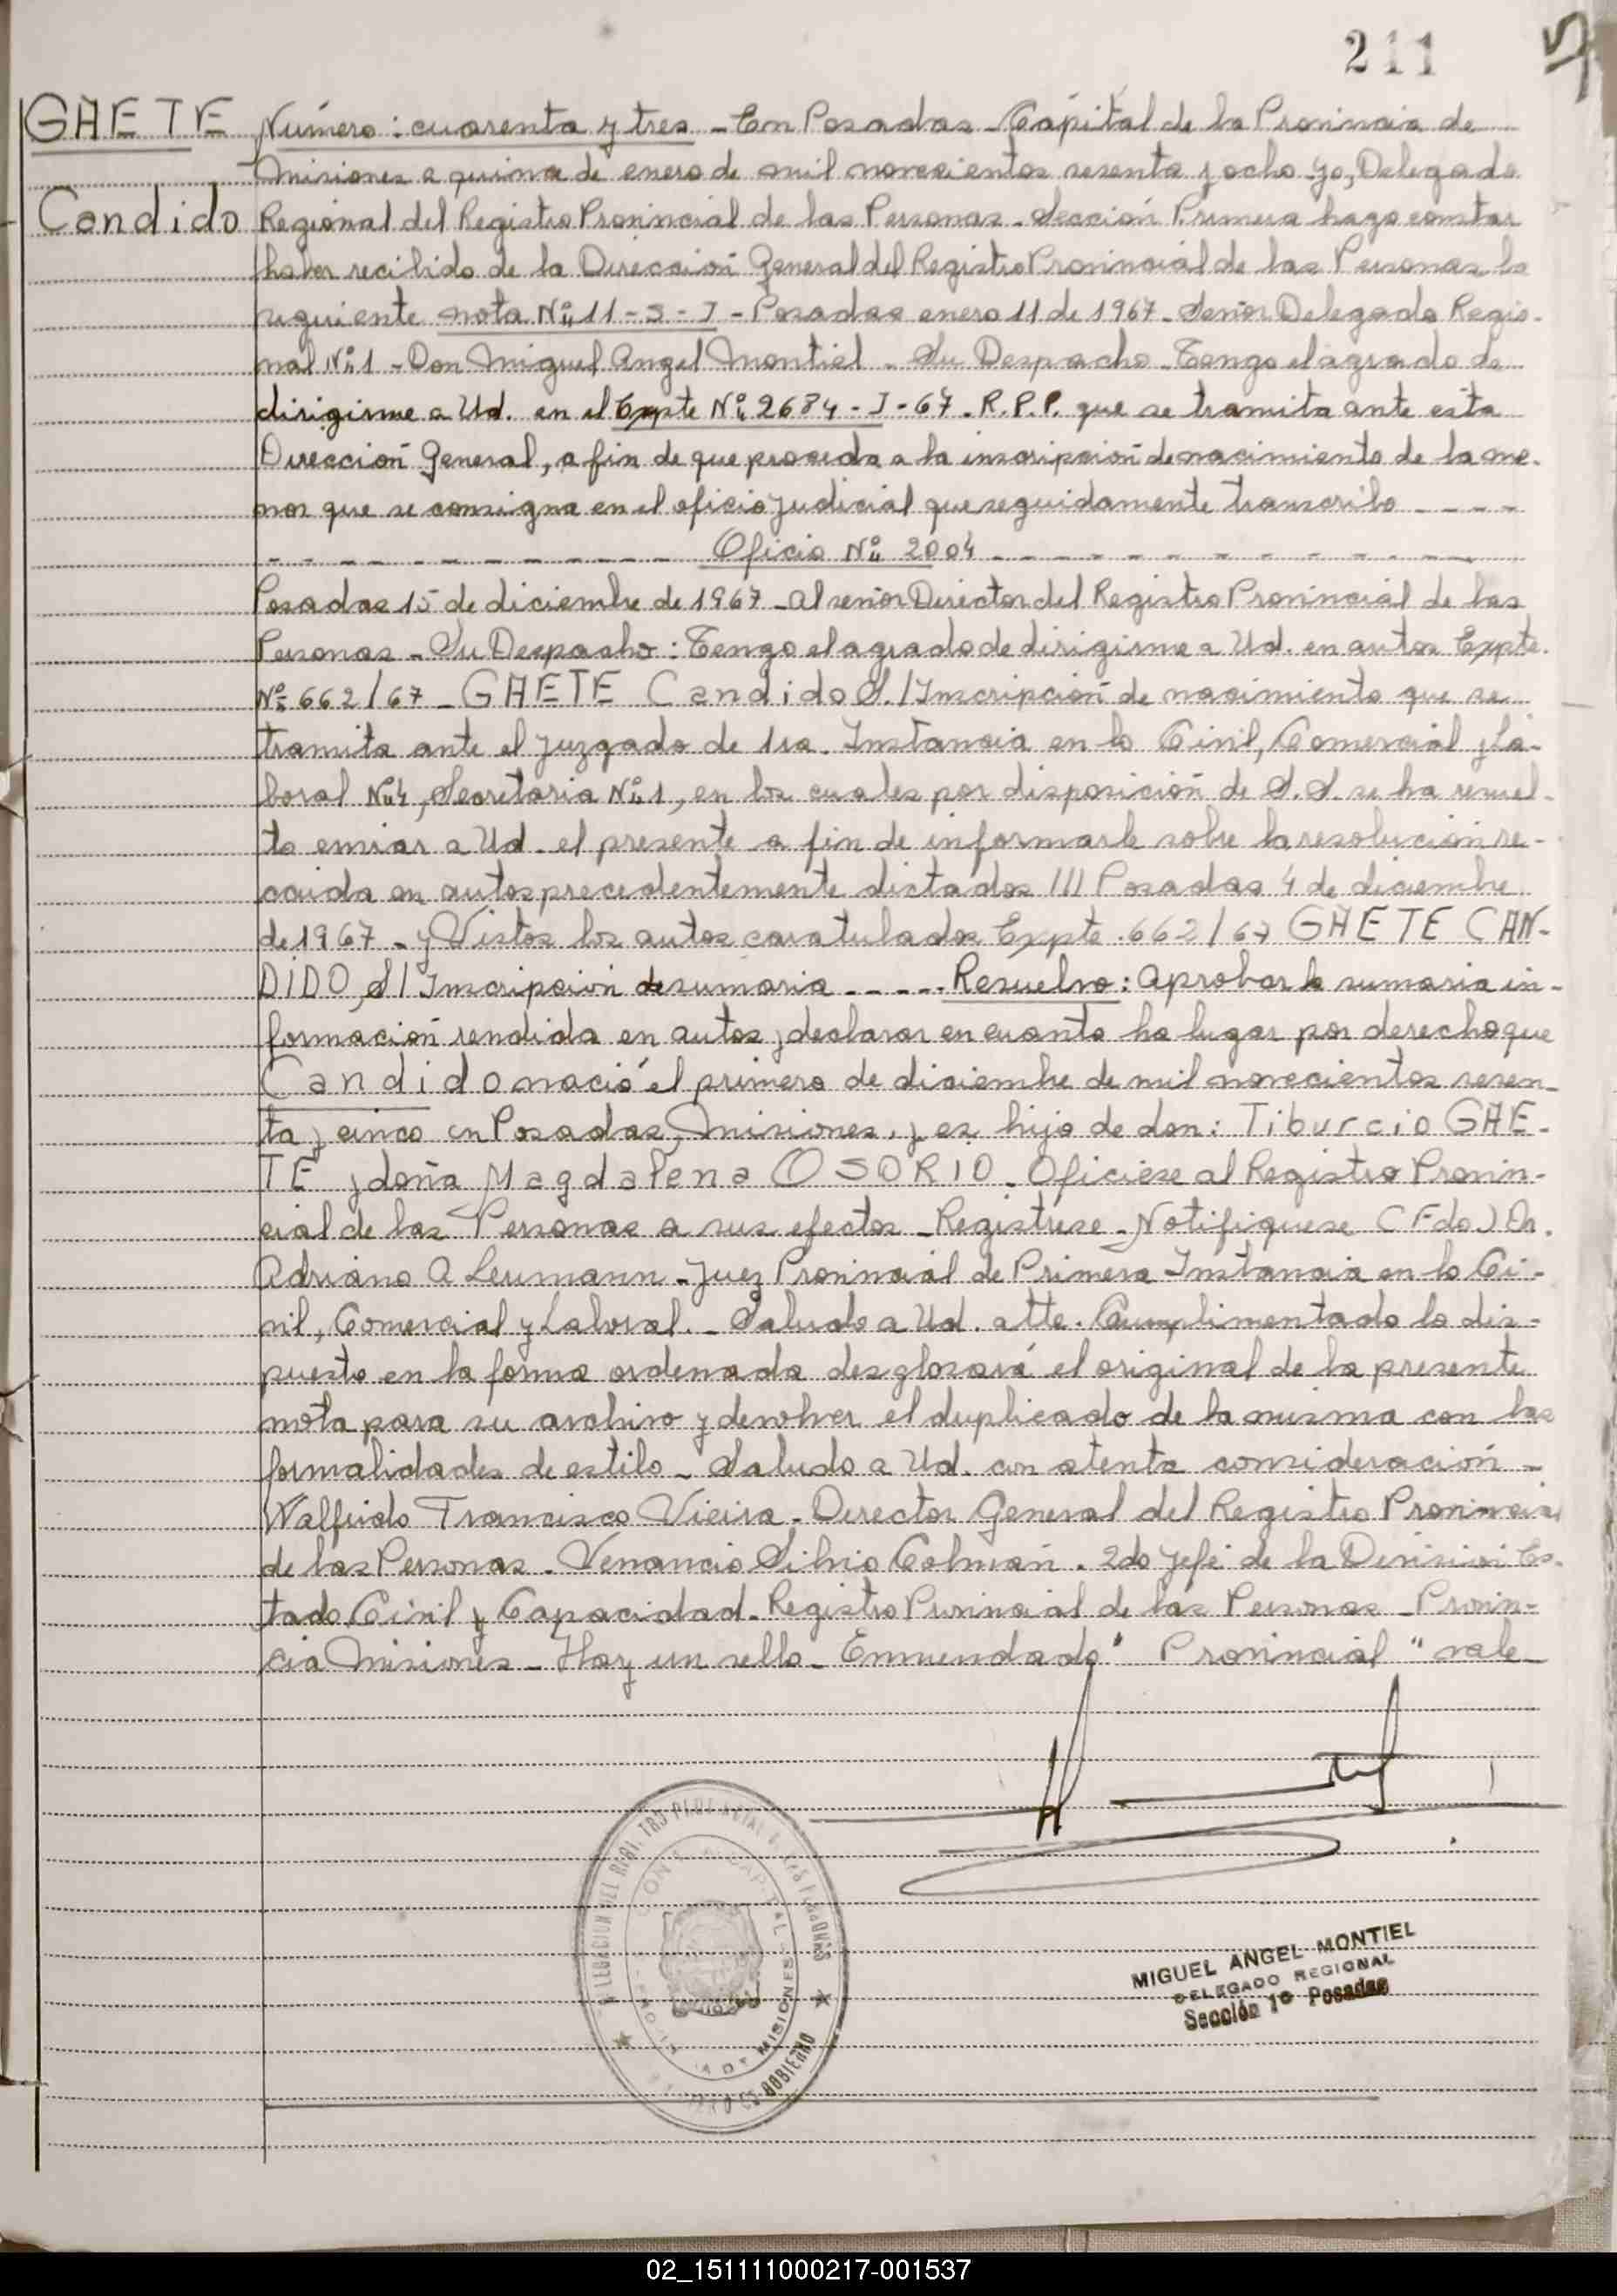 211
GAETE
Candido
Número: cuarenta y tres - En Posadas - Capital de la Provincia de
Misiones a quince de enero de mil novecientos sesenta y ocho - yo, Delegado
Regional del Registro Provincial de las Personas - Sección Primera hago constar
haber recibido de la Dirección General del Registro Provincial de las Personas la
siguiente nota Nº 11 - S - I - Posadas enero 11 de 1967 - Señor Delegado Regio-
nal Nº 1 - Don Miguel Angel Montiel - Su Despacho - Tengo el agrado de
dirigirme a Ud. en el Expte Nº 2684 - I - 67 - R.P.P. que se tramita ante esta
Dirección General, a fin de que proceda a la inscripción de nacimiento de la me-
nor que se consigna en el oficio judicial que seguidamente transcribo - - - -
- - - - - - - - - - - - Oficio Nº 2004 - - - - - - - - - - - -
Posadas 15 de diciembre de 1967 - Al señor Director del Registro Provincial de las
Personas - Su Despacho: Tengo el agrado de dirigirme a Ud. en autos Expte.
Nº 662/67 - GAETE Candido S./Inscripción de nacimiento que se
tramita ante el Juzgado de 1ra. Instancia en lo Civil, Comercial y La-
boral Nº 4, Secretaria Nº 1, en los cuales por disposición de S.S. se ha resuel-
to enviar a Ud. el presente a fin de informarle sobre la resolución re-
caida en autos precedentemente dictados /// Posadas 4 de diciembre
de 1967 - y Vistos los autos caratulados Expte. 662/67 GAETE CAN-
DIDO, S/ Inscripción de sumaria - - - - - Resuelvo: Aprobar la sumaria in-
formación rendida en autos y declarar en cuanto ha lugar por derecho que
Candido nació el primero de diciembre de mil novecientos sesen-
ta y cinco en Posadas, Misiones, y es hijo de don: Tiburcio GAE-
TE y doña Magdalena OSORIO - Oficiese al Registro Provin-
cial de las Personas a sus efectos - Registrese - Notifiquese (Fdo) Dr.
Adriano A Leumann - Juez Provincial de Primera Instancia en lo Ci-
vil, Comercial y Laboral. - Saludo a Ud. atte. Cumplimentado lo dis-
puesto en la forma ordenada desglosará el original de la presente
nota para su archivo y devolver el duplicado de la misma con las
formalidades de estilo - Saludo a Ud. con atenta consideración -
Walfrido Francisco Vieira - Director General del Registro Provincial
de las Personas - Venancio Silvio Colman - 2do Jefe de la Division Es-
tado Civil y Capacidad - Registro Provincial de las Personas - Provin-
cia Misiones - Hay un sello - Enmendado " Provincial " vale -
MIGUEL ANGEL MONTIEL
DELEGADO REGIONAL
Sección 1º Posadas
02_151111000217-001537